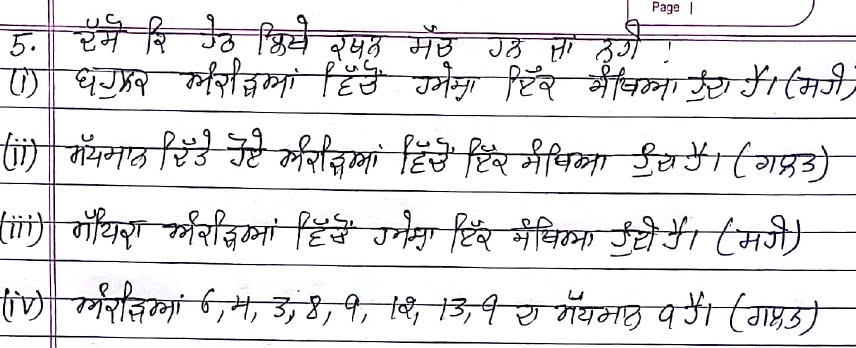 Page 1
5. ਦੱਸੋ ਕਿ ਹੇਠ ਲਿਖੇ ਕਥਨ ਸੱਚ ਹਨ ਜਾਂ ਨਹੀਂ !
(i) ਬਹੁਲਕ ਅੰਕੜਿਆਂ ਵਿੱਚੋਂ ਹਮੇਸ਼ਾ ਇੱਕ ਸੰਖਿਆ ਹੁੰਦਾ ਹੈ। (ਸਹੀ)
(ii) ਮੱਧਮਾਨ ਦਿੱਤੇ ਹੋਏ ਅੰਕੜਿਆਂ ਵਿੱਚੋਂ ਇੱਕ ਸੰਖਿਆ ਹੁੰਦਾ ਹੈ। (ਗਲਤ)
(iii) ਮੱਧਿਕਾ ਅੰਕੜਿਆਂ ਵਿੱਚੋਂ ਹਮੇਸ਼ਾ ਇੱਕ ਸੰਖਿਆ ਹੁੰਦੀ ਹੈ। (ਸਹੀ)
(iv) ਅੰਕੜਿਆਂ 6, 4, 3, 8, 9, 12, 13, 9 ਦਾ ਮੱਧਮਾਨ 9 ਹੈ। (ਗਲਤ)